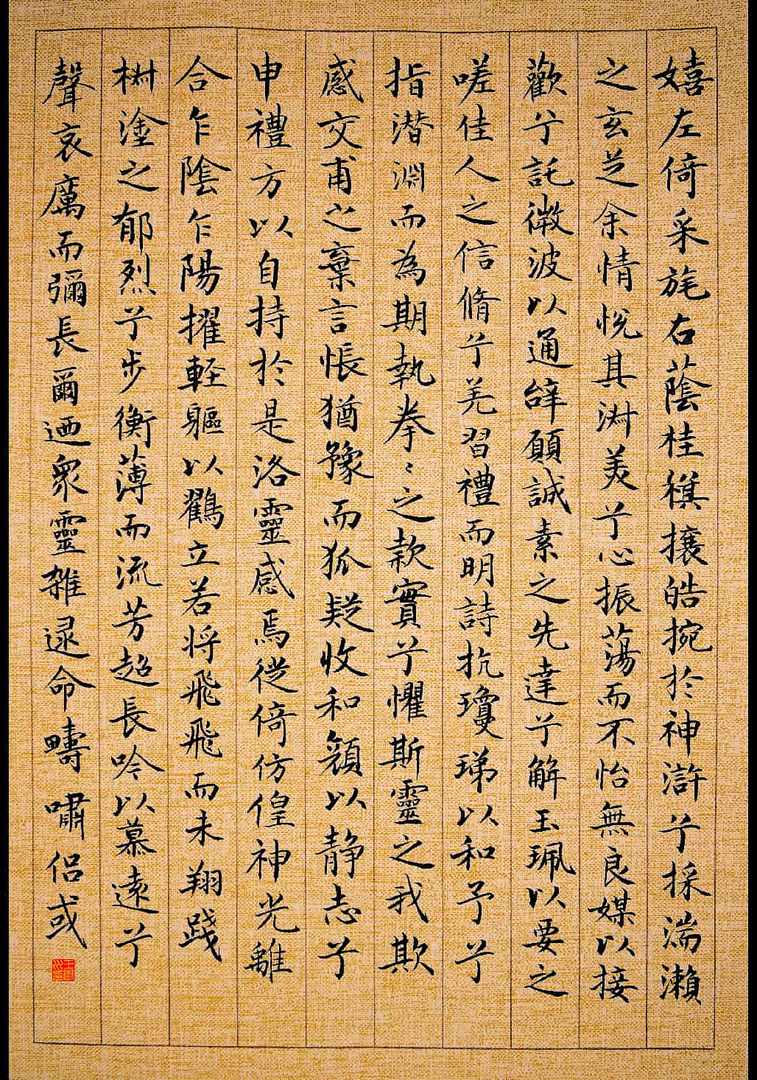 嬉左倚采旄右蔭桂旗攘皓捥於神滸兮採湍瀨
之玄芝余情悅其淑美兮心振蕩而不怡無良媒以接
歡兮託微波以通辭願誠素之先達兮解玉珮以要之
嗟佳人之信脩兮羌習禮而明詩抗瓊珶以和予兮
指潛淵而為期執拳〻之款實兮懼斯靈之我欺
感交甫之棄言悵猶豫而狐疑收和顏以静志兮
申禮方以自持於是洛靈感焉徙倚仿偟神光離
合乍陰乍陽擢輕軀以鶴立若将飛飛而未翔踐
椒塗之郁烈兮步衡薄而流芳超長吟以慕遠兮
聲哀厲而彌長爾迺眾靈雜遝命疇嘯侶或